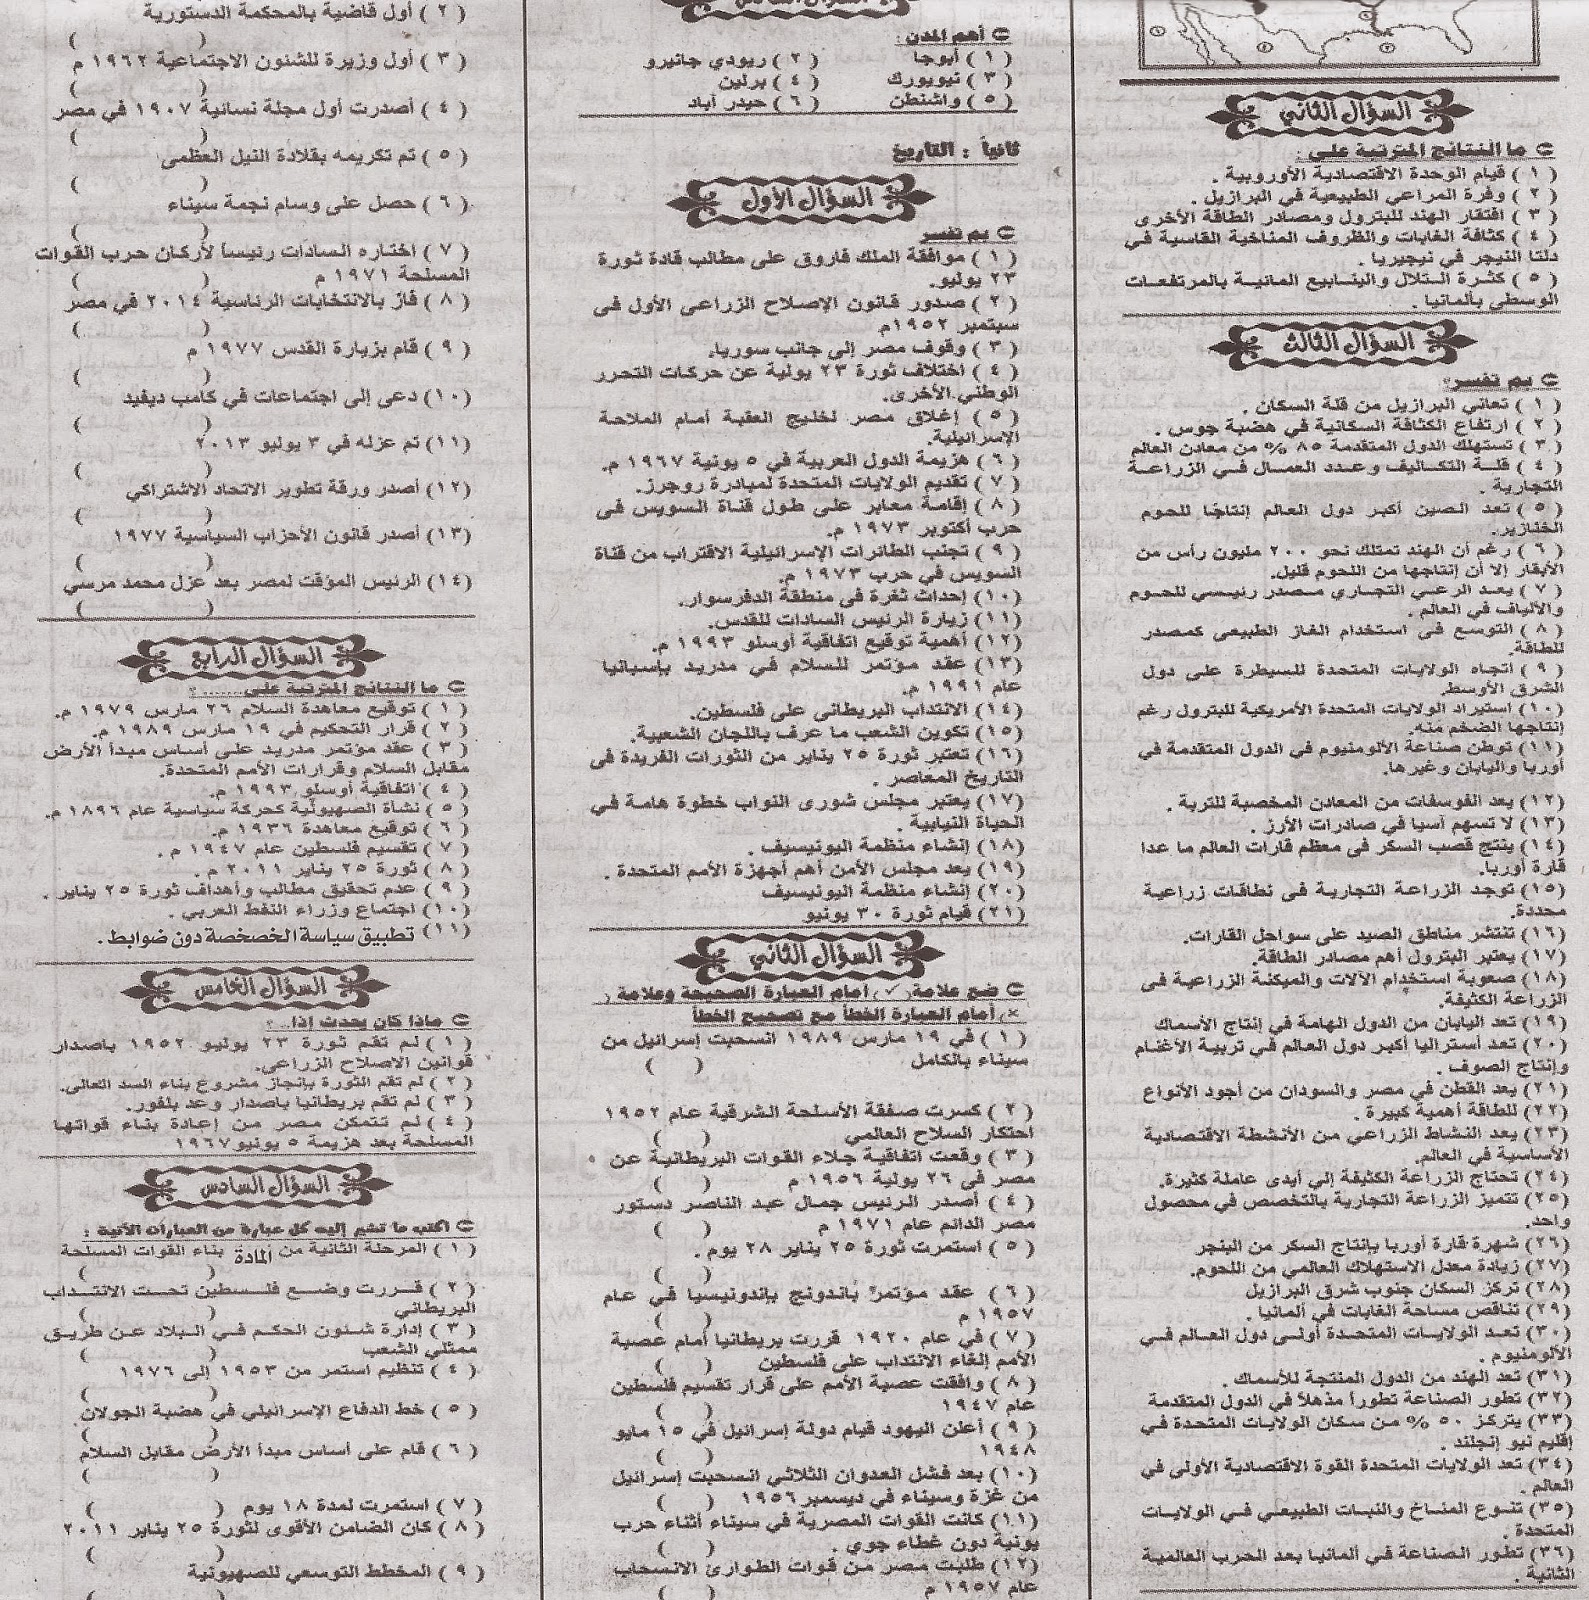 السؤال الثاني
ما النتائج المترتبة على :
( ١ ) قيام الوحدة الاقتصادية الأوروبية .
( ٢ ) وفرة المراعي الطبيعية في البرازيل .
( ٣ ) افتقار الهند للبترول ومصادر الطاقة الأخرى
( ٤ ) كثافة الغابات والظروف المناخية القاسية في
دلتا النيجر في نيجيريا .
( ٥ ) كثرة التلال والينابيع المائية بالمرتفعات
الوسطى بألمانيا .
السؤال الثالث
بم تفسر؟
( ١ ) تعاني البرازيل من قلة السكان .
( ٢ ) ارتفاع الكثافة السكانية في هضبة جوس .
( ٣ ) تستهلك الدول المتقدمة ٨٥ % من معادن العالم
( ٤ ) قلة التكاليف وعدد العمال في الزراعة
التجارية .
( ٥ ) تعد الصين أكبر دول العالم إنتاجًا للحوم
الخنازير.
( ٦ ) رغم أن الهند تمتلك نحو ٢٠٠ مليون رأس من
الأبقار إلا أن إنتاجها من اللحوم قليل.
( ٧ ) يعد الرعي التجاري مصدر رئيسي للحوم
والألياف في العالم .
( ٨ ) التوسع فى استخدام الغاز الطبيعى كمصدر
للطاقة.
( ٩ ) اتجاه الولايات المتحدة للسيطرة على دول
الشرق الأوسط.
(١٠) استيراد الولايات المتحدة الأمريكية للبترول رغم
إنتاجها الضخم منه.
(١١) توطن صناعة الألومنيوم في الدول المتقدمة في
أوربا واليابان وغيرها.
(١٢) يعد الفوسفات من المعادن المخصبة للتربة .
(١٣) لا تسهم آسيا في صادرات الأرز .
(١٤) ينتج قصب السكر فى معظم قارات العالم ما عدا
قارة أوربا.
(١٥) توجد الزراعة التجارية فى نطاقات زراعية
محددة.
(١٦) تنتشر مناطق الصيد على سواحل القارات.
(١٧) يعتبر البترول أهم مصادر الطاقة.
(١٨) صعوبة استخدام الآلات والميكنة الزراعية فى
الزراعة الكثيفة.
(١٩) تعد اليابان من الدول الهامة في إنتاج الأسماك
(٢٠) تعد أستراليا أكبر دول العالم في تربية الأغنام
وإنتاج الصوف .
(٢١) يعد القطن في مصر والسودان من أجود الأنواع
(٢٢) للطاقة أهمية كبيرة .
(٢٣) يعد النشاط الزراعي من الأنشطة الاقتصادية
الأساسية في العالم.
(٢٤) تحتاج الزراعة الكثيفة إلي أيدى عاملة كثيرة.
(٢٥) تتميز الزراعة التجارية بالتخصص في محصول
واحد.
(٢٦) شهرة قارة أوربا بإنتاج السكر من البنجر
(٢٧) زيادة معدل الاستهلاك العالمي من اللحوم.
(٢٨) تركز السكان جنوب شرق البرازيل
(٢٩) تناقص مساحة الغابات في ألمانيا .
(٣٠) تعد الولايات المتحدة أولى دول العالم في
الألومنيوم .
(٣١) تعد الهند من الدول المنتجة للأسماك .
(٣٢) تطور الصناعة تطوراً مذهلاً في الدول المتقدمة
(٣٣) يتركز ٥٠ % من سكان الولايات المتحدة في
إقليم نيو إنجلند .
(٣٤) تعد الولايات المتحدة القوة الاقتصادية الأولى في
العالم .
(٣٥) تنوع المناخ والنبات الطبيعي في الولايات
المتحدة .
(٣٦) تطور الصناعة في ألمانيا بعد الحرب العالمية
الثانية .
أهم المدن :
( ١ ) أبوجا ( ٢ ) ريودي جانيرو
( ٣ ) نيويورك ( ٤ ) برلين
( ٥ ) واشنطن ( ٦ ) حيدر آباد
ثانياً : التاريخ
السؤال الأول
بم تفسر
( ١ ) موافقة الملك فاروق على مطالب قادة ثورة
٢٣ يوليو.
( ٢ ) صدور قانون الإصلاح الزراعى الأول فى
سبتمبر ١٩٥٢م
( ٣ ) وقوف مصر إلى جانب سوريا.
( ٤ ) اختلاف ثورة ٢٣ يولية عن حركات التحرر
الوطني الأخرى.
( ٥ ) إغلاق مصر لخليج العقبة أمام الملاحة
الإسرائيلية.
( ٦ ) هزيمة الدول العربية في ٥ يونية ١٩٦٧ م.
( ٧ ) تقديم الولايات المتحدة لمبادرة روجرز.
( ٨ ) إقامة معابر على طول قناة السويس فى
حرب أكتوبر ١٩٧٣ م.
( ٩ ) تجنب الطائرات الإسرائيلية الاقتراب من قناة
السويس في حرب ١٩٧٣ م.
(١٠) إحداث ثغرة فى منطقة الدفرسوار.
(١١) زيارة الرئيس السادات للقدس.
(١٢) أهمية توقيع اتفاقية أوسلو ١٩٩٣ م.
(١٣) عقد مؤتمر للسلام في مدريد بإسبانيا
عام ١٩٩١ م.
(١٤) الانتداب البريطانى على فلسطين.
(١٥) تكوين الشعب ما عرف باللجان الشعبية.
(١٦) تعتبر ثورة ٢٥ يناير من الثورات الفريدة فى
التاريخ المعاصر .
(١٧) يعتبر مجلس شورى النواب خطوة هامة في
الحياة النيابية .
(١٨) إنشاء منظمة اليونيسيف .
(١٩) يعد مجلس الأمن أهم أجهزة الأمم المتحدة .
(٢٠) إنشاء منظمة اليونيسيف
(٢١) قيام ثورة ٣٠ يونيو
السؤال الثاني
ضع علامة ( ✓ ) أمام العبارة الصحيحة وعلامة (
× ) أمام العبارة الخطأ مع تصحيح الخطأ
( ١ ) في ١٩ مارس ١٩٨٩ انسحبت إسرائيل من
سيناء بالكامل ( )
( ٢ ) كسرت صفقة الأسلحة الشرقية عام ١٩٥٢
احتكار السلاح العالمي ( )
( ٣ ) وقعت اتفاقية جلاء القوات البريطانية عن
مصر فى ٢٦ يولية ١٩٥٦ م ( )
( ٤ ) أصدر الرئيس جمال عبد الناصر دستور
مصر الدائم عام ١٩٧١ م ( )
( ٥ ) استمرت ثورة ٢٥ يناير ٢٨ يوم .
( )
( ٦ ) عقد مؤتمر باندونج بإندونيسيا في عام
١٩٥٧ م ( )
( ٧ ) في عام ١٩٢٠ قررت بريطانيا أمام عصبة
الأمم إلغاء الانتداب على فلسطين ( )
( ٨ ) وافقت عصبة الأمم على قرار تقسيم فلسطين
عام ١٩٤٧ ( )
( ٩ ) أعلن اليهود قيام دولة إسرائيل في ١٥ مايو
١٩٤٨ ( )
(١٠) بعد فشل العدوان الثلاثي انسحبت إسرائيل
من غزة وسيناء في ديسمبر ١٩٥٦ ( )
(١١) كانت القوات المصرية في سيناء أثناء حرب
يونية دون غطاء جوي . ( )
(١٢) طلبت مصر من قوات الطوارئ الانسحاب
عام ١٩٥٧ م ( )
( ٢ ) أول قاضية بالمحكمة الدستورية
( )
( ٣ ) أول وزيرة للشئون الاجتماعية ١٩٦٢ م
( )
( ٤ ) أصدرت أول مجلة نسائية ١٩٠٧ في مصر
( )
( ٥ ) تم تكريمه بقلادة النيل العظمى
( )
( ٦ ) حصل على وسام نجمة سيناء
( )
( ٧ ) اختاره السادات رئيساً لأركان حرب القوات
المسلحة ١٩٧١ م ( )
( ٨ ) فاز بالانتخابات الرئاسية ٢٠١٤ في مصر
( )
( ٩ ) قام بزيارة القدس ١٩٧٧ م
( )
(١٠) دعى إلى اجتماعات في كامب ديفيد
( )
(١١) تم عزله في ٣ يوليو ٢٠١٣
( )
(١٢) أصدر ورقة تطوير الاتحاد الاشتراكي
( )
(١٣) أصدر قانون الأحزاب السياسية ١٩٧٧
( )
(١٤) الرئيس المؤقت لمصر بعد عزل محمد مرسي
( )
السؤال الرابع
ما النتائج المترتبة على........ ؟
( ١ ) توقيع معاهدة السلام ٢٦ مارس ١٩٧٩ م.
( ٢ ) قرار التحكيم في ١٩ مارس ١٩٨٩ م.
( ٣ ) عقد مؤتمر مدريد على أساس مبدأ الأرض
مقابل السلام وقرارات الأمم المتحدة.
( ٤ ) اتفاقية أوسلو ١٩٩٣ م.
( ٥ ) نشأة الصهيونية كحركة سياسية عام ١٨٩٦ م.
( ٦ ) توقيع معاهدة ١٩٣٦ م.
( ٧ ) تقسيم فلسطين عام ١٩٤٧ م .
( ٨ ) ثورة ٢٥ يناير ٢٠١١ م .
( ٩ ) عدم تحقيق مطالب وأهداف ثورة ٢٥ يناير .
(١٠) اجتماع وزراء النفط العربي .
(١١) تطبيق سياسة الخصخصة دون ضوابط .
السؤال الخامس
ماذا كان يحدث إذا..؟
( ١ ) لم تقم ثورة ٢٣ يوليو ١٩٥٢ بإصدار
قوانين الاصلاح الزراعى.
( ٢ ) لم تقم الثورة بإنجاز مشروع بناء السد العالى.
( ٣ ) لم تقم بريطانيا بإصدار وعد بلفور.
( ٤ ) لم تتمكن مصر من إعادة بناء قواتها
المسلحة بعد هزيمة ٥ يونيو١٩٦٧
السؤال السادس
اكتب ما تشير إليه كل عبارة من العبارات الآتية :
( ١ ) المرحلة الثانية من إعادة بناء القوات المسلحة
( )
( ٢ ) قررت وضع فلسطين تحت الانتداب
البريطاني ( )
( ٣ ) إدارة شئون الحكم في البلاد عن طريق
ممثلي الشعب ( )
( ٤ ) تنظيم استمر من ١٩٥٣ إلى ١٩٧٦
( )
( ٥ ) خط الدفاع الإسرائيلي في هضبة الجولان
( )
( ٦ ) قام على أساس مبدأ الأرض مقابل السلام
( )
( ٧ ) استمرت لمدة ١٨ يوم ( )
( ٨ ) كان الضامن الأقوى لثورة ٢٥ يناير ٢٠١١
( )
( ٩ ) المخطط التوسعي للصهيونية
( )